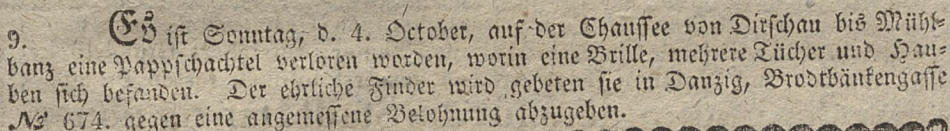 9. Es ist Sonntag, d. 4. October, auf der Chaussee von Dirschau bis Mühl-
banz eine Pappschachtel verloren worden, worin eine Brille, mehrere Tücher und Hau-
ben sich befanden. Der ehrliche Finder wird gebeten sie in Danzig, Brodtbänkengasse
№ 674. gegen eine angemessene Belohnung abzugeben.